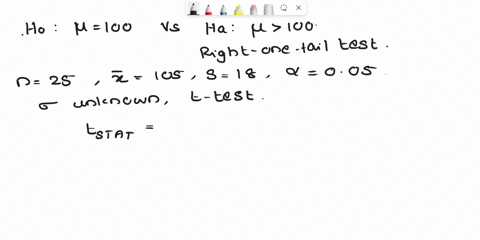 .Ho: μ=100 vs Ha: μ>100.
Right-one-tail test.
n=25, x̄=105, S=18, α=0.05.
σ unknown, t-test.
tSTAT =